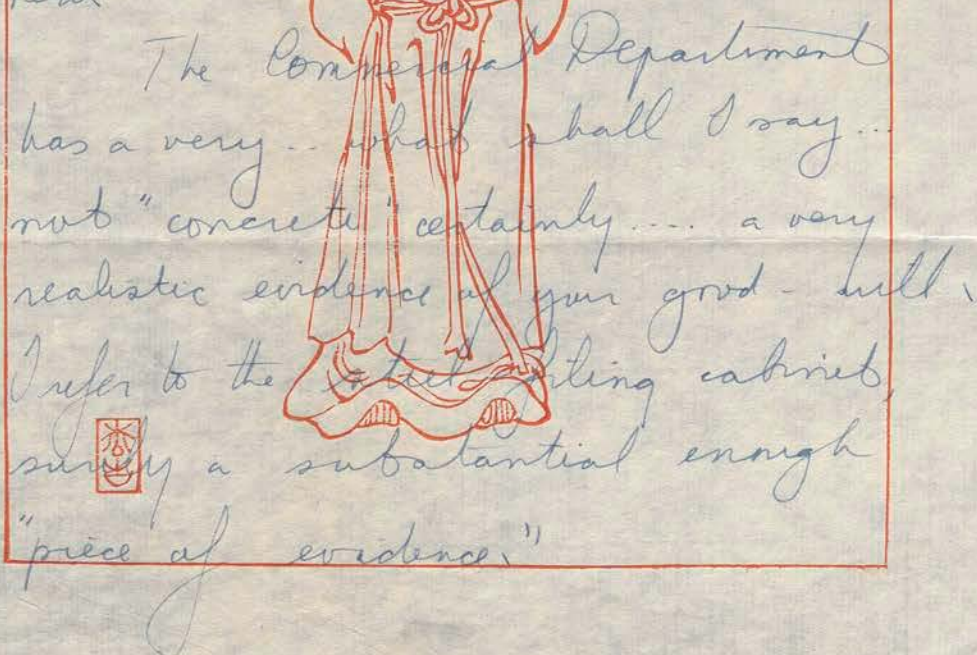 The Commercial Department
has a very.. what shall I say...
not "concrete" certainly.... a very
realistic evidence of your good-will.
I refer to the steel filing cabinet,
surely a substantial enough
"piece of evidence."